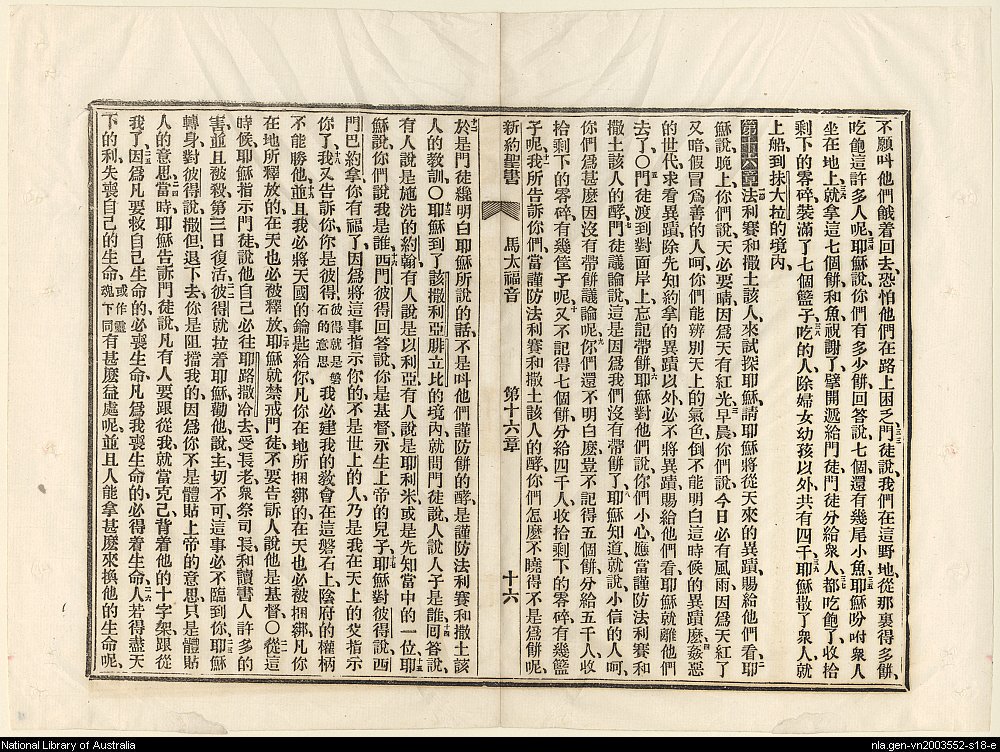 不願叫他們餓着回去、恐怕他們在路上困乏、三三門徒說、我們在這野地、從那裏得多餅、
吃飽這許多人呢、三四耶穌說、你們有多少餅、回答說、七個、還有幾尾小魚、三五耶穌吩咐衆人
坐在地上、三六就拿這七個餅和魚、祝謝了、擘開、遞給門徒、門徒分給衆人、三七都吃飽了、收拾
剩下的零碎、裝滿了七個籃子、三八吃的人、除婦女幼孩以外、共有四千、三九耶穌散了衆人、就
上船、到抹大拉的境內、
第十六章 一法利賽和撒土該人、來試探耶穌、請耶穌將從天來的異蹟、賜給他們看、二耶
穌說、晚上、你們說、天必要晴、因爲天有紅光、三早晨、你們說、今日必有風雨、因爲天紅了
又暗、假冒爲善的人呵、你們能辨別天上的氣色、倒不能明白這時候的異蹟麽、四姦惡
的世代求看異蹟、除先知約拿的異蹟以外、必不將異蹟賜給他們看、耶穌就離他們
去了、〇五門徒渡到對面岸上、忘記帶餅、六耶穌對他們說、你們小心、應當謹防法利賽和
撒土該人的酵、七門徒議論說、這是因爲我們沒有帶餅了、八耶穌知道、就說、小信的人呵、
你們爲甚麽因沒有帶餅議論呢、九你們還不明白麽、豈不記得五個餅、分給五千人、收
拾剩下的零碎有幾筐子呢、十又不記得七個餅、分給四千人、收拾剩下的零碎有幾籃
子呢、十一我所告訴你們、當謹防法利賽和撒土該人的酵、你們怎麽不曉得不是爲餅呢、
新約聖書 馬太福音 第十六章 十六
十二於是門徒纔明白耶穌所說的話、不是叫他們謹防餅的酵、是謹防法利賽和撒土該
人的教訓、〇十三耶穌到了該撒利亞腓立比的境內、就問門徒說、人說人子是誰、十四回答說、
有人說是施洗的約翰、有人說是以利亞、有人說是耶利米、或是先知當中的一位、十五耶
穌說、你們說我是誰、十六西門彼得回答說、你是基督、永生上帝的兒子、十七耶穌對彼得說、西
門巴約拿、你有福了、因爲將這事指示你的、不是世上的人、乃是我在天上的父指示
你了、十八我又告訴你、你是彼得、彼得就是磐石的意思我必建我的教會在這磐石上、陰府的權柄
不能勝他、十九並且我必將天國的鑰匙給你、凡你在地所捆綁的、在天也必被捆綁、凡你
在地所釋放的、在天也必被釋放、二十耶穌就禁戒門徒、不要告訴人說他是基督、〇二一從這
時候、耶穌指示門徒說、他自己必往耶路撒冷去、受長老衆祭司長和讀書人許多的
害、並且被殺、第三日復活、二二彼得就拉着耶穌勸他、說、主切不可、這事必不臨到你、二三耶穌
轉身對彼得說、撒但、退下去、你是阻擋我的、因爲你不是體貼上帝的意思、只是體貼
人的意思、二四當時耶穌告訴門徒說、凡有人要跟從我、就當克己、背着他的十字架跟從
我了、二五因爲凡要救自己生命的、必喪生命、凡爲我喪生命的、必得着生命、二六人若得盡天
下的利、失喪自己的生命、或作靈魂下同有甚麽益處呢、並且人能拿甚麽來換他的生命呢、
National Library of Australia
nla.gen-vn2003552-s18-e